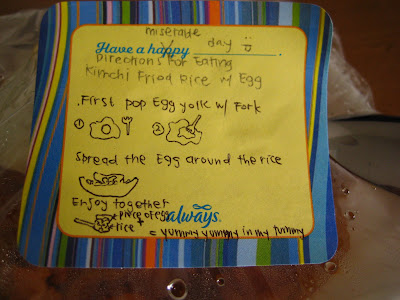 miserable
Have a happy day
Directions For Eating
Kimchi Fried Rice w/ Egg
.First pop Egg yolk w/ Fork
① ②
Spread the Egg around the rice
Enjoy together
+ piece of egg
+ rice
always.
= yummy yummy in my tummy